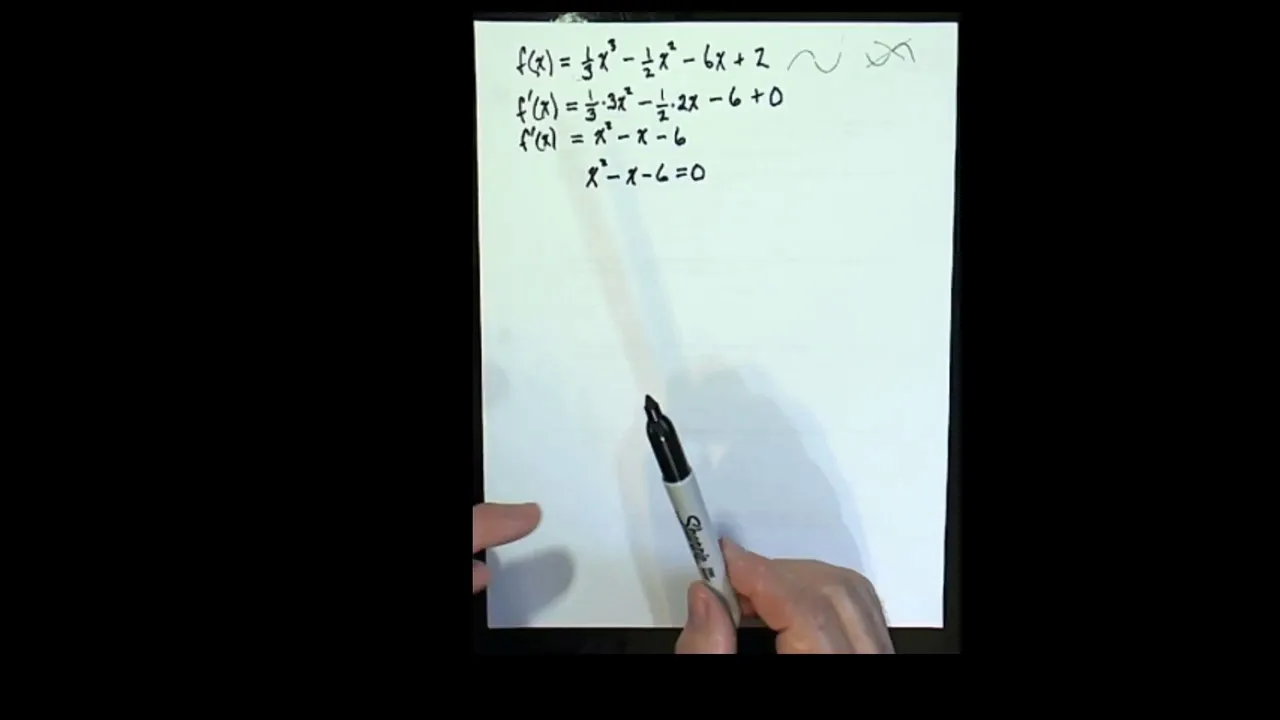 f(x) = 1/3 x³ - 1/2 x² - 6x + 2
f'(x) = 1/3 · 3x² - 1/2 · 2x - 6 + 0
f'(x) = x² - x - 6
x² - x - 6 = 0
Sharpie